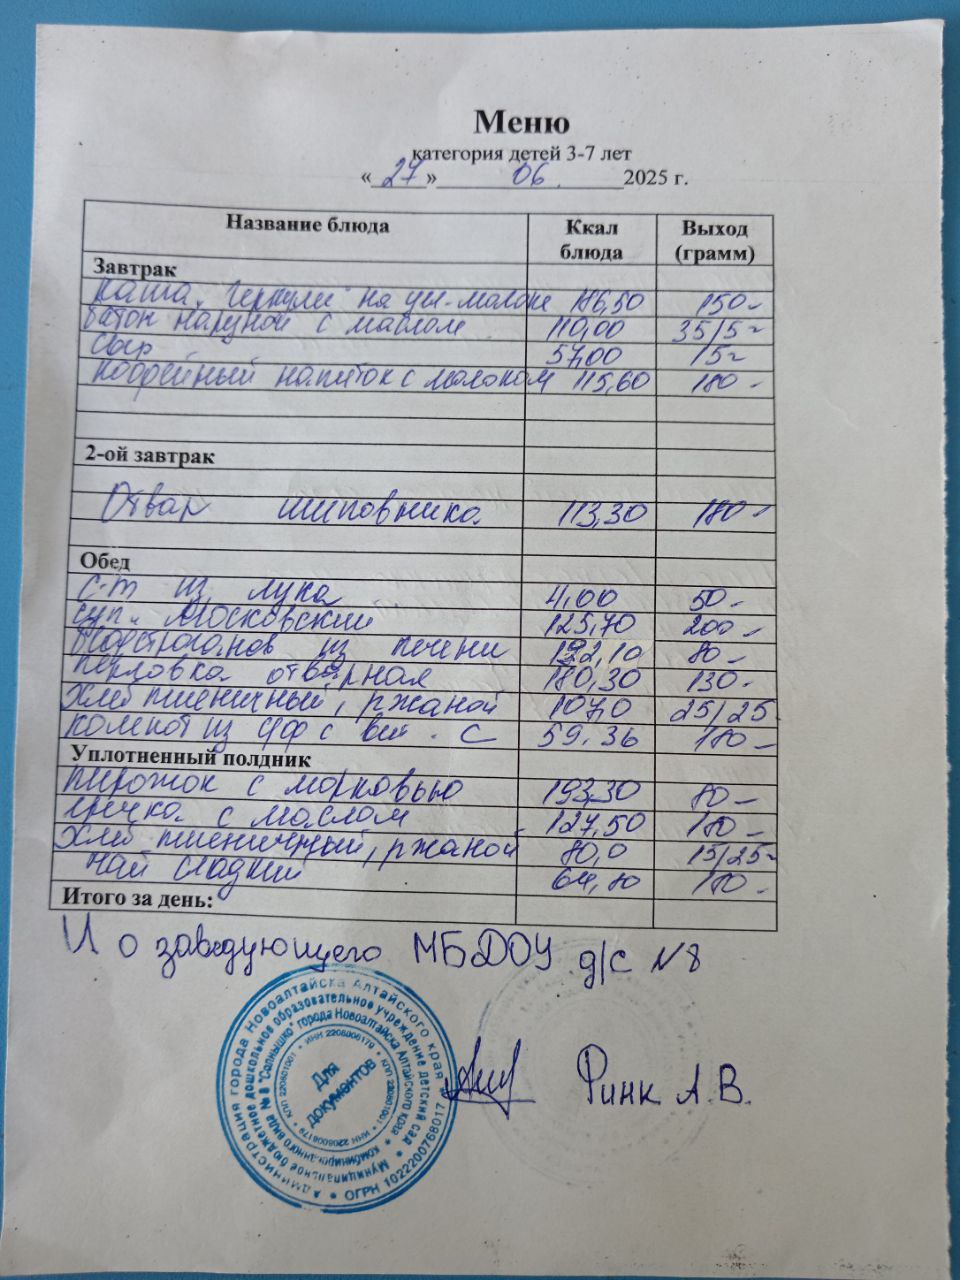 Меню
категория детей 3-7 лет
« 27 » 06. 2025 г.
Название блюда Ккал блюда Выход (грамм)
Завтрак
каша "Геркулес" на цн. молоке 186,50 150-
батон нарезной с маслом 110,00 35/5-
сыр 57,00 15-
кофейный напиток с молоком 115,60 180-
2-ой завтрак
Отвар шиповника 113,30 180-
Обед
с-т из лука 4,00 50-
суп "Московский 125,70 200-
Бефстроганов из печени 192,10 80-
перловка отварная 180,30 130-
хлеб пшеничный, ржаной 107,0 25/25-
компот из с/ф с вит. С 59.36 180-
Уплотненный полдник
пирожок с морковью 193,30 80-
гречка с маслом 127,50 180-
хлеб пшеничный, ржаной 80,0 15/25-
чай сладкий 64,80 180-
Итого за день:
И о заведующего МБДОУ д/с N8
Ринк А.В.
Администрация города Новоалтайска Алтайского края
Муниципальное бюджетное дошкольное образовательное учреждение детский сад
комбинированного вида № 8 "Солнышко" города Новоалтайска Алтайского края
ОГРН 1022200768017
Для
документов